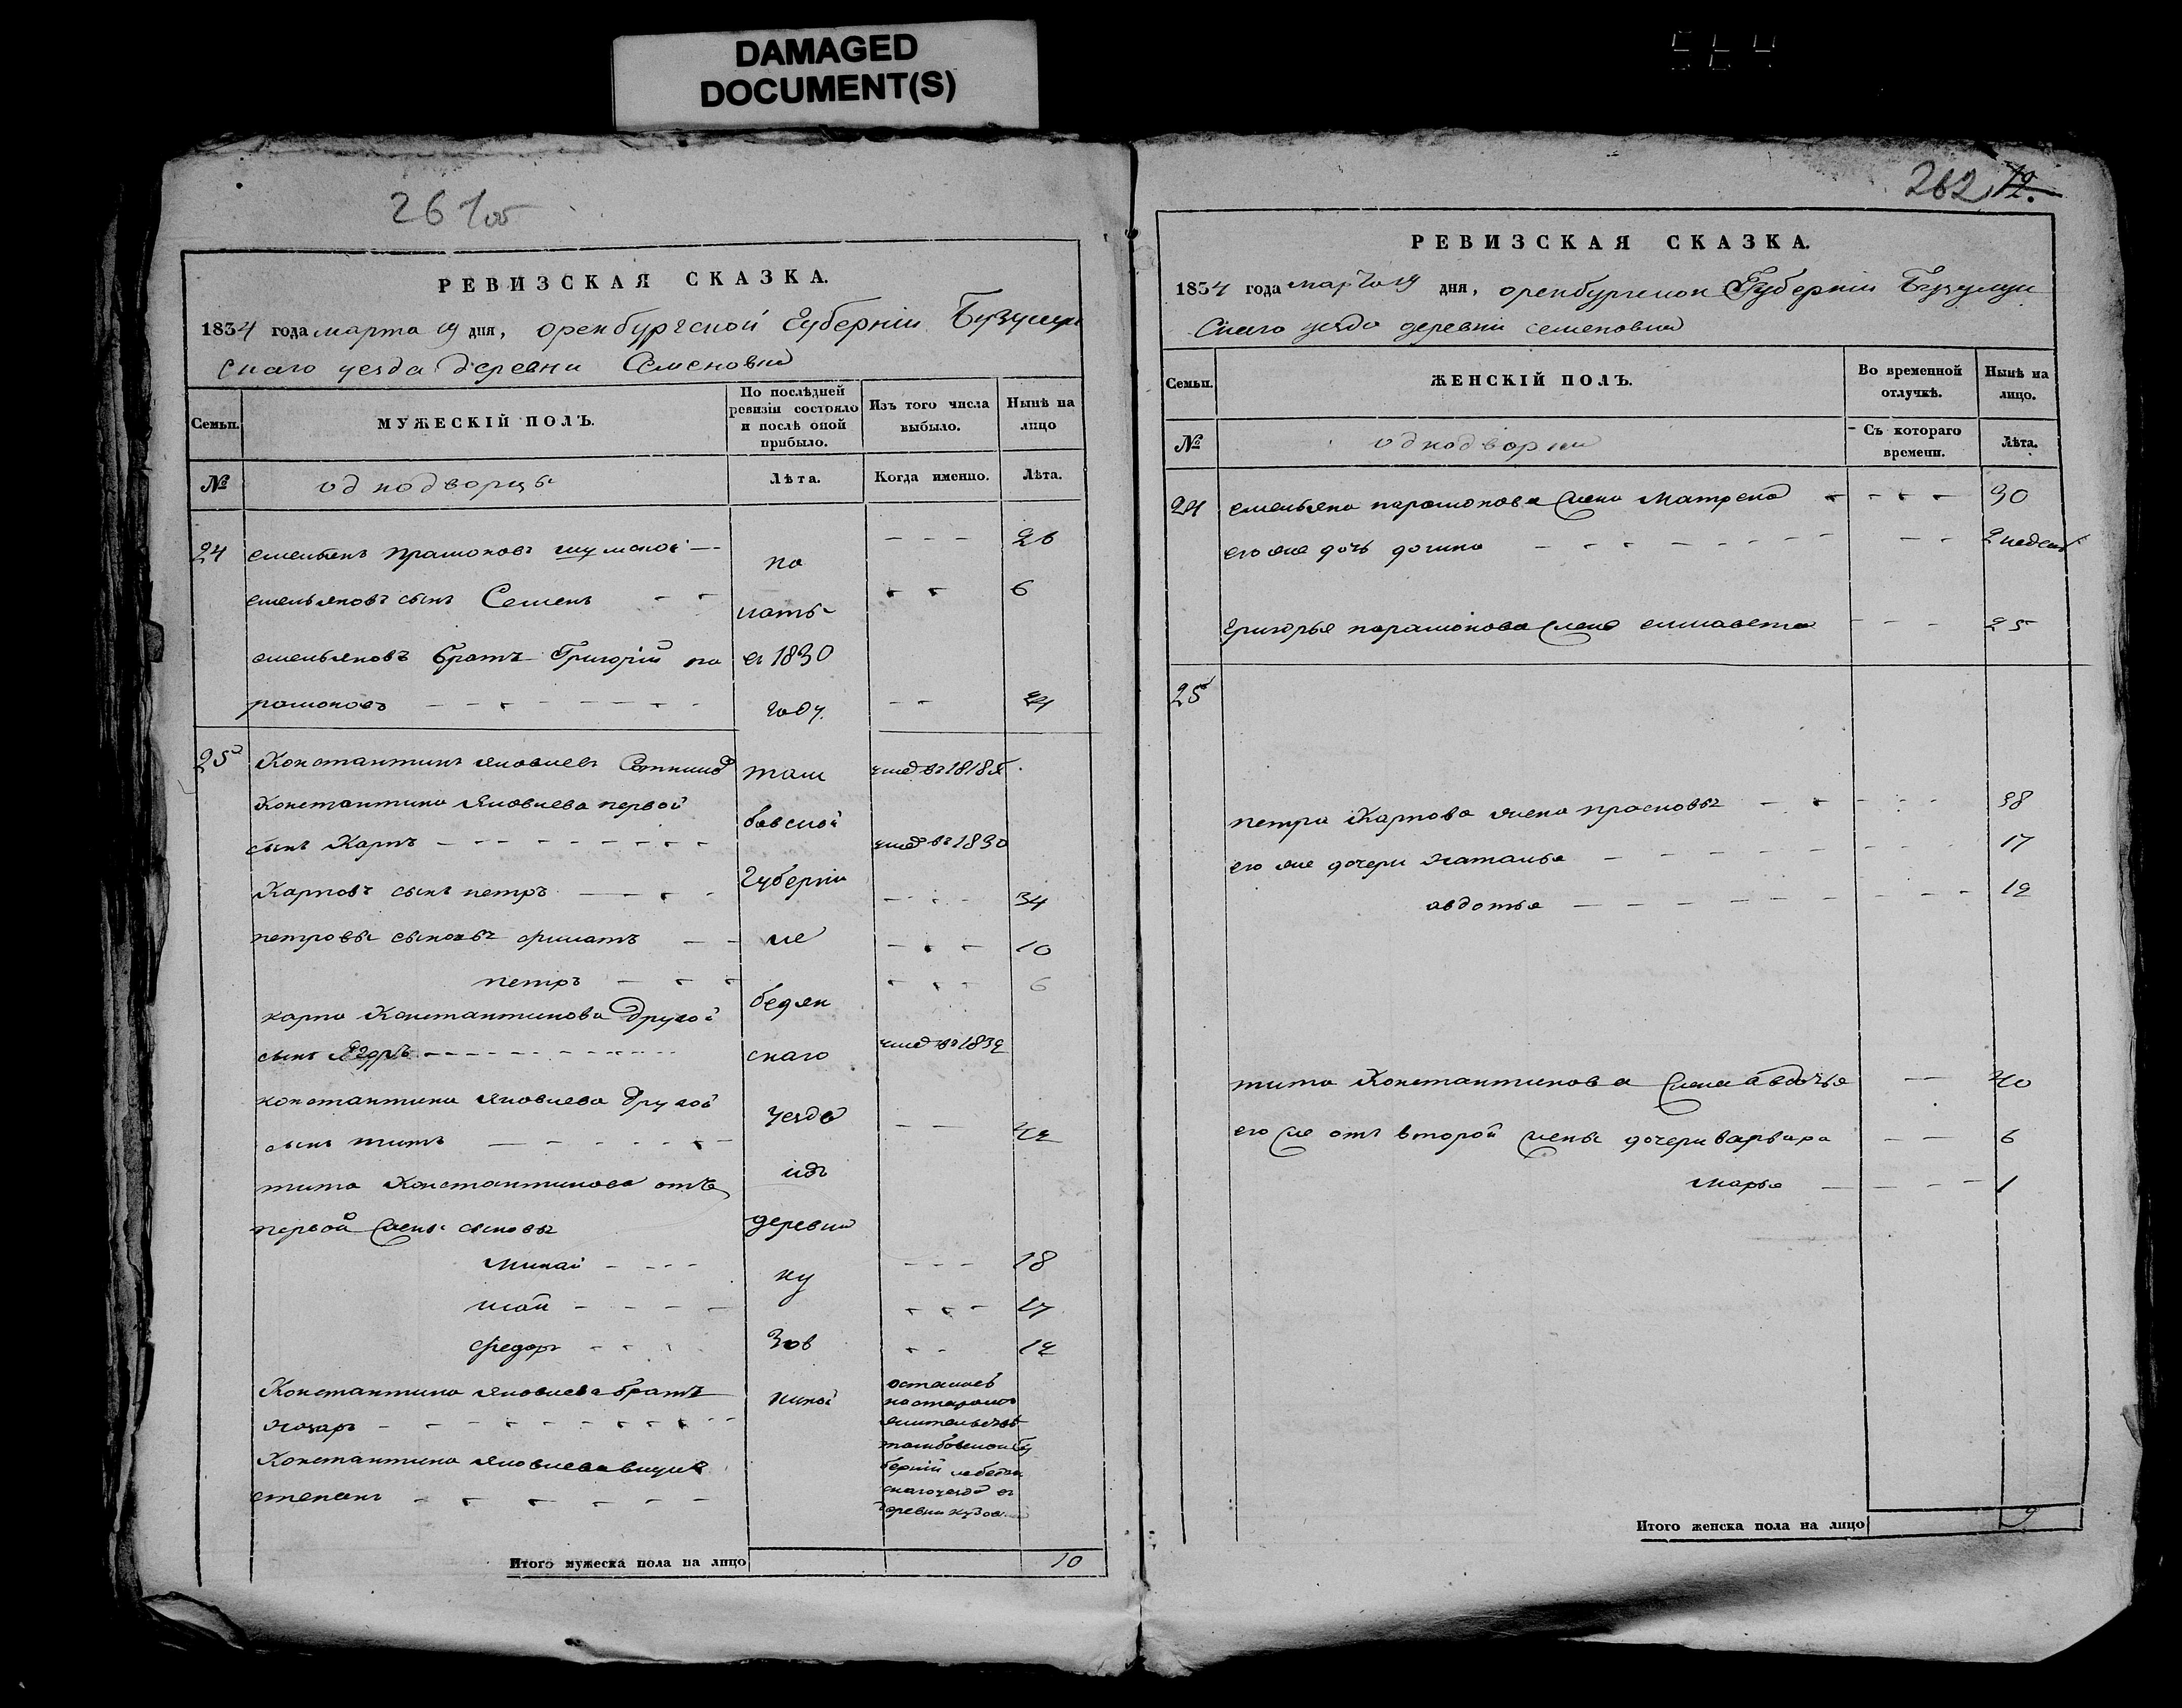 DAMAGED
DOCUMENT(S)
261об
РЕВИЗСКАЯ СКАЗКА.
1834 года марта 19 дня, оренбургской Губернiи Бузулук
скаго уезда деревни Семеновки
Семьи.
МУЖЕСКIЙ ПОЛЪ.
По послѣдней
ревизiи состояло
и послѣ оной
прибыло.
Изъ того числа
выбыло.
Нынѣ на
лицо
№
однодворцы
Лѣта.
Когда именно.
Лѣта.
24 емельянъ парамоновъ шумской по - - - 26
емельяновъ сынъ Семенъ - - 6
емельяновъ братъ Григорiй па е 1830
рамоновъ - - - году. - -
25 Константинъ яковлевъ там умер въ 1818
Константина Яковлева первой
сынъ Карпъ - - - бовской умер въ 1830
Карповъ сынъ петръ - - - губернiи - - - 34
петровы сыновья филатъ - - ле - - - 10
петръ - - - 6
карпа Константинова другой бедян
сынъ - - - скаго умер въ 1832
константина яковлева другой
сынъ титъ - - - уезда - - 42
тита Константинова отъ изъ
первой жены сыновья деревни
минай - - - ку - - - 18
- - - - 17
федоръ - - - зов - - 12
Константина яковлева братъ киной
назаръ - - -
Константина яковлева внукъ
степанъ - - -
остались
на старомъ
жительстве
тамбовской гу
бернiи лебедян
скаго уезда в
деревни кузов
Итого мужеска пола на лицо 10
262 12.
РЕВИЗСКАЯ СКАЗКА.
1834 года марта 19 дня, оренбургской Губернiи Бузулук
скаго уезда деревни семеновки
Семьи.
ЖЕНСКIЙ ПОЛЪ.
Во временной
отлучкѣ.
Нынѣ на
лицо.
№
однодворки
Съ котораго
времени.
Лѣта.
24 емельяна парамонова жена Матрена - - - - 30
его же дочь - - - 2 недели
Григорья парамонова жена елисавета - - - 25
25
петра Карпова жена прасковья - - - 38
его же дочери наталья - - - 17
авдотья - - - 12
тита Константинова жена авдотья - - 40
его же отъ второй жены дочери варвара - - 6
марья - - - 1
Итого женска пола на лицо 9